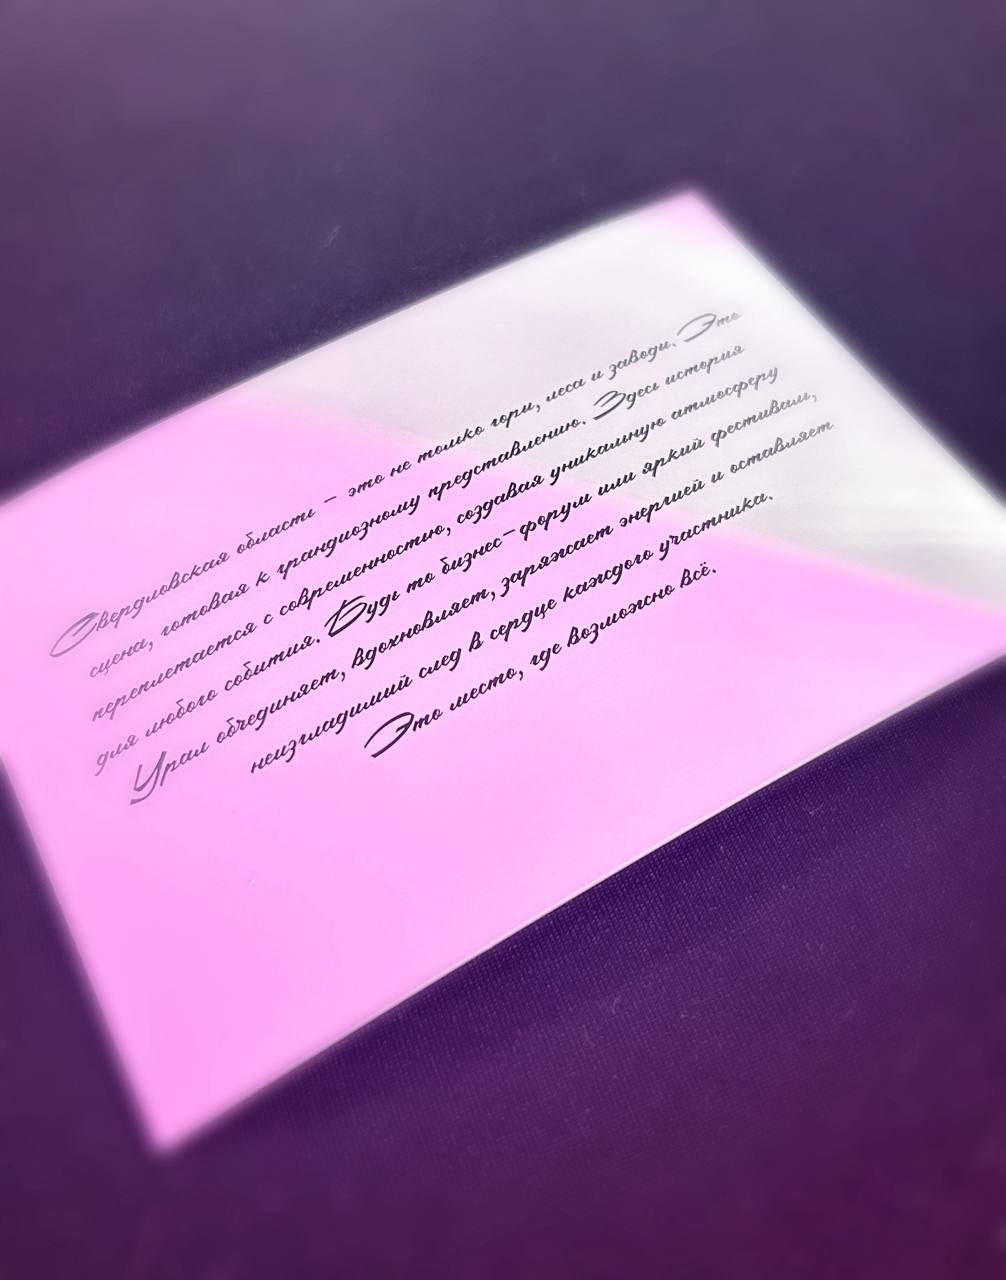 Свердловская область – это не только горы, леса и заводы. Это
сцена, готовая к грандиозному представлению. Здесь история
переплетается с современностью, создавая уникальную атмосферу
для любого события. Будь то бизнес-форум или яркий фестиваль,
Урал объединяет, вдохновляет, заряжает энергией и оставляет
неизгладимый след в сердце каждого участника.
Это место, где возможно всё.